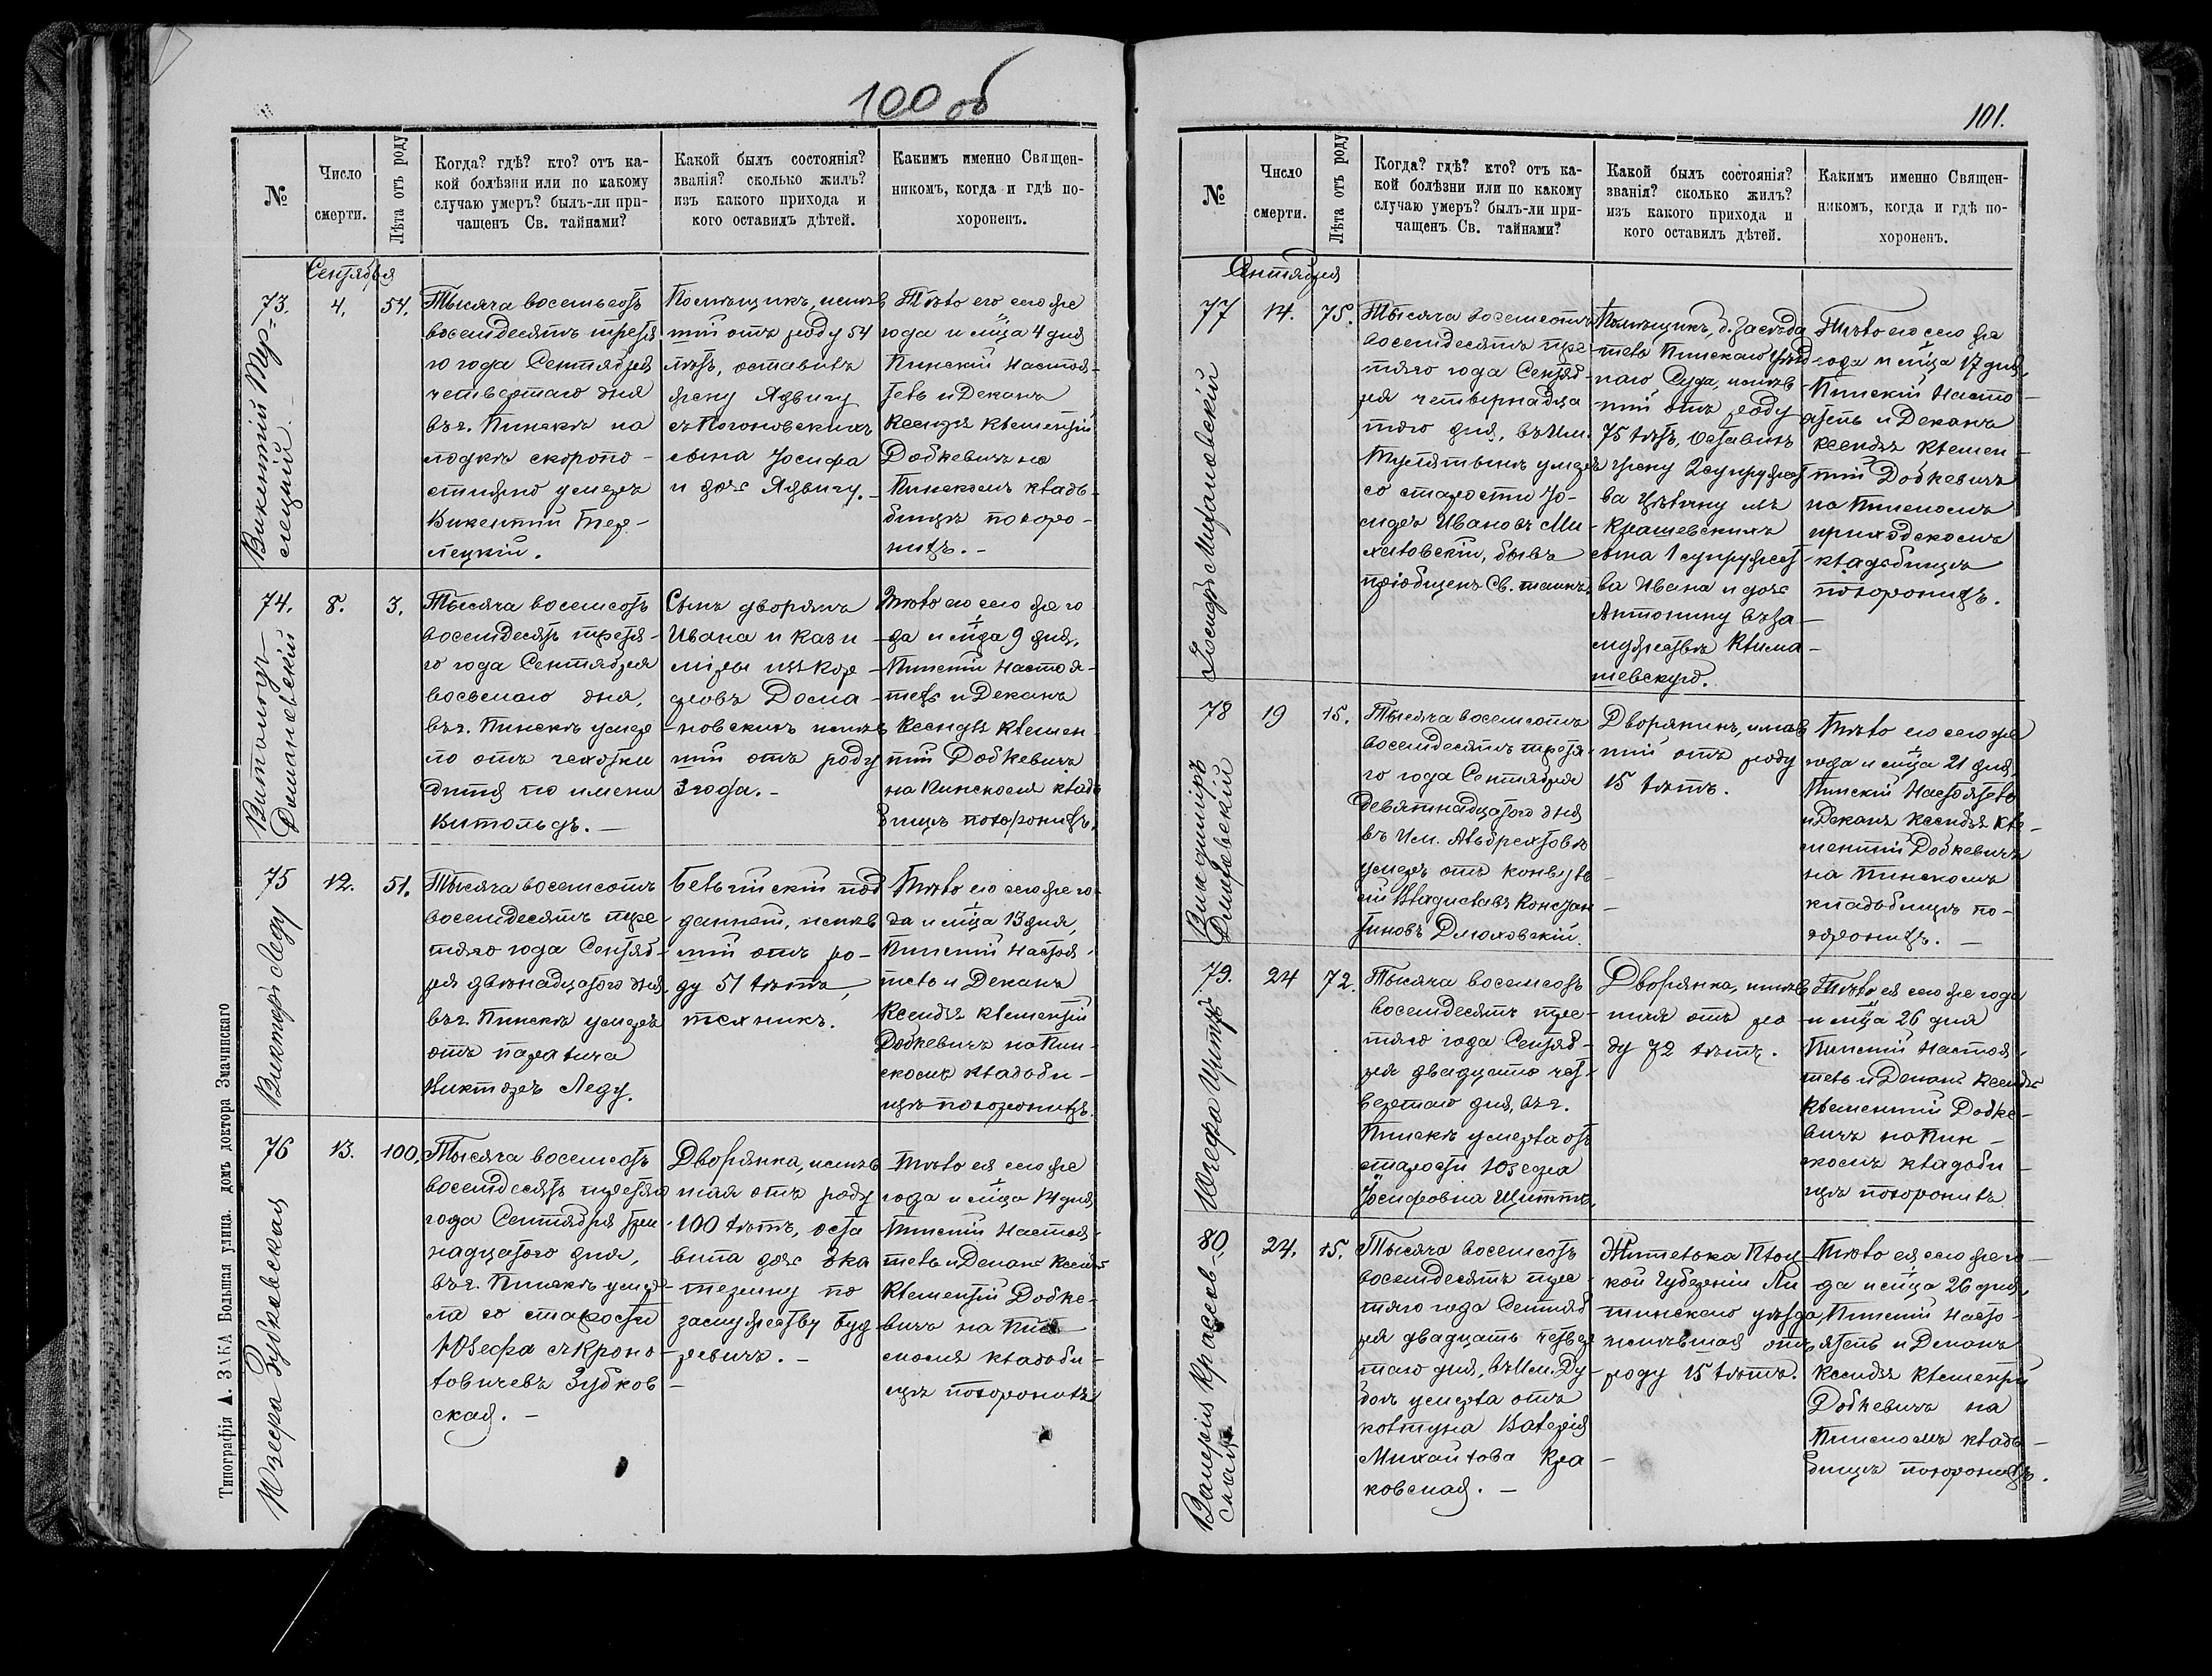 100 об
№
Число
смерти.
Лѣта отъ роду
Когда? гдѣ? кто? отъ ка-
кой болѣзни или по какому
случаю умеръ? былъ-ли при-
чащенъ Св. тайнами?
Какой былъ состоянія?
званія? сколько жилъ?
изъ какого прихода и
кого оставилъ дѣтей.
Какимъ именно Священ-
никомъ, когда и гдѣ по-
хороненъ.
Сентября
73.
Викентій Тер-
лецкій
4.
54.
Тысяча восемьсотъ
восемдесятъ третя
го года Сентября
четвертаго дня
въ г. Пинскѣ на
лодкѣ скоропо-
стижно умеръ
Викентій Тер-
лецкій.
Помѣщикъ, имѣв
шій отъ роду 54
лѣтъ, оставилъ
жену Ядвигу
сына Іосифа
и дочь Ядвигу.
Тѣло его сего же
года и м-ца 4 дня
Пинскій Настоя-
тель и Деканъ
Ксендзъ Клементій
Добкевичъ на
Пинскомъ кладь-
бищѣ похоро-
нилъ. -
74.
Витольдъ
Домановскій
8.
3.
Тысяча восемсотъ
восемдесятъ третя-
го года Сентября
восьмаго дня,
въ г. Пинскѣ умер
ло отъ чахотки
дитя по имени
Витольдъ. -
Сынъ дворянъ
Ивана и Кази
міры
Дома-
новскихъ имѣв
шій отъ роду
3 года. -
Тѣло его сего же го
да и м-ца 9 дня,
Пинскій Настоя-
тель и Деканъ
Ксендзъ Клемен
тій Добкевичъ
на Пинскомъ кладь
бищѣ похоронилъ.
75
Викторъ Леду
12.
51.
Тысяча восемсотъ
восемдесятъ тре-
тяго года Сентяб-
ря двѣнадцатого дня
въ г. Пинскѣ умеръ
отъ паралича
Викторъ Леду.
Бельгійскій под
данный, имѣв
шій отъ ро-
ду 51 лѣтъ,
техникъ.
Тѣло его сего же го-
да и м-ца 13 дня,
Пинскій Настоя-
тель и Деканъ
Ксендзъ Клементій
Добкевичъ на Пин-
скомъ кладьби-
щѣ похоронилъ.
76
Юзефа Зубковская
13.
100.
Тысяча восемсотъ
восемдесятъ третяго
года Сентября три
надцатого дня,
въ г. Пинскѣ умер-
ла со старости
Юзефа съ Кроно-
товичевъ Зубков-
ская. -
Дворянка, имѣв
шая отъ роду
100 лѣтъ, оста
вила дочь Ека
терину по
замужеству Буд
ревичъ. -
Тѣло ея сего же
года и м-ца 14 дня
Пинскій Настоя-
тель и Деканъ Ксендзъ
Клементій Добке-
вичъ на Пин-
скомъ кладьби-
щѣ похоронилъ
Типографія А. ЗАКА Большая улица. домъ доктора Змачинскаго
101.
№
Число
смерти.
Лѣта отъ роду
Когда? гдѣ? кто? отъ ка-
кой болѣзни или по какому
случаю умеръ? былъ-ли при-
чащенъ Св. тайнами?
Какой былъ состоянія?
званія? сколько жилъ?
изъ какого прихода и
кого оставилъ дѣтей.
Какимъ именно Священ-
никомъ, когда и гдѣ по-
хороненъ.
Сентября
77
Іосифъ Михаловскій
14.
75.
Тысяча восемсотъ
восемдесятъ тре-
тяго года Сентяб-
ря четырнадца
таго дня, въ им.
умеръ
со старости Іо-
сифъ Ивановъ Ми-
халовскій, бывъ
пріобщенъ Св. таинъ
Помѣщикъ, б. Засѣда
тель Пинскаго Уѣзд
наго Суда, имѣв
шій отъ роду
75 лѣтъ, оставилъ
жену 2 супружест
ва
Крашевскихъ
сына 1 супружест-
ва Ивана и дочь
Антонину въ за-
мужествѣ Клима-
шевскую.
Тѣло его сего же
года и м-ца 17 дня,
Пинскій Насто-
ятель и Деканъ
Ксендзъ Клемен-
тій Добкевичъ
на Пинскомъ
приходскомъ
кладбищѣ
похоронилъ.
78
19
15.
Тысяча восемсотъ
восемдесятъ третя-
го года Сентября
девятнадцатого дня
въ им. Альбрехтовѣ
умеръ отъ конвуль-
сій Владиславъ Констан-
тиновъ Длюховскій.
Дворянинъ, имѣв
шій отъ роду
15 лѣтъ.
Тѣло его сего же
года и м-ца 21 дня
Пинскій Настоятель
и Деканъ Ксендзъ Кле-
ментій Добкевичъ
на Пинскомъ
кладьбищѣ по-
хоронилъ. -
79.
Юзефа Щиттъ
24
72.
Тысяча восемсотъ
восемдесятъ тре-
тяго года Сентяб-
ря двадцать чет-
вертаго дня, въ г.
Пинскѣ умерла отъ
старости Юзефа
Іосифовна Щиттъ.
Дворянка, имѣв
шая отъ ро
ду 72 лѣтъ.
Тѣло ея сего же года
и м-ца 26 дня
Пинскій Настоя-
тель и Деканъ Ксендзъ
Клементій Добке-
вичъ на Пин-
скомъ кладби-
щѣ похоронилъ
80
Валерія Краков-
ская
24.
15.
Тысяча восемсотъ
восемдесятъ тре-
тяго года Сентяб
ря двадцать четвер
таго дня, въ им. Ду-
бой умерла отъ
колтуна Валерія
Михайлова Кра-
ковская. -
Жителька Плоц
кой Губерніи Ли
пинскаго уѣзда,
имѣвшая отъ
роду 15 лѣтъ.
Тѣло ея сего же го-
да и м-ца 26 дня,
Пинскій Насто-
ятель и Деканъ
Ксендзъ Клементій
Добкевичъ на
Пинскомъ кладь-
бищѣ похоронилъ.